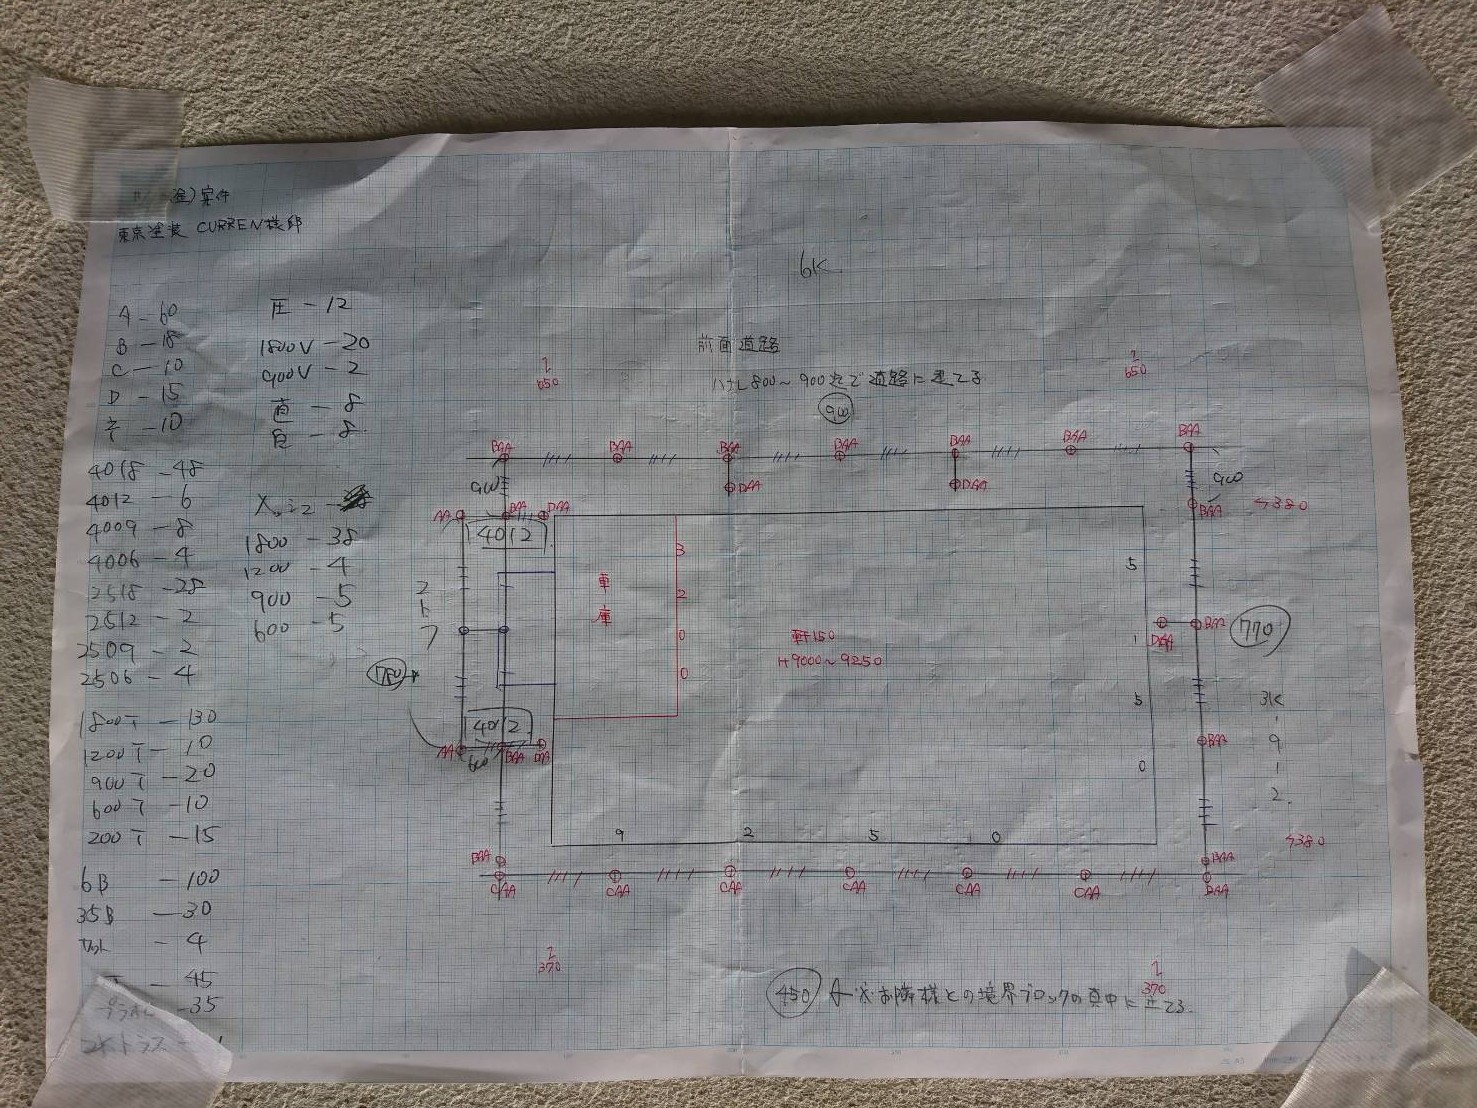 金)案件
東京塗装 CURREN様邸
A - 60
B - 18
C - 10
D - 15
ネ - 10
4018 - 48
4012 - 6
4009 - 8
4006 - 4
2518 - 28
2512 - 2
2509 - 2
2506 - 4
1800T - 130
1200T - 10
900T - 20
600T - 10
200T - 15
6B - 100
35B - 30
- 4
- 45
- 35
2Kトラス -
圧 - 12
1800V - 20
900V - 2
直 - 8
自 - 8
1800 - 38
1200 - 4
900 - 5
600 - 5
6K
前面道路
ハナレ800~900迄で道路に建てる
900
650
650
BAA BAA BAA BAA BAA BAA BAA
900
DAA DAA
900
AA BAA DAA
BAA
380
4012
車庫
3200
2トラ
軒150
H9000~9250
5150
DAA BAA
770
3K-912
BAA
4012
AA BAA DAA
600
9250
BAA
CAA CAA CAA CAA CAA CAA
BAA
DAA
380
370
370
450 ←※お隣様との境界ブロックの真中に立てる